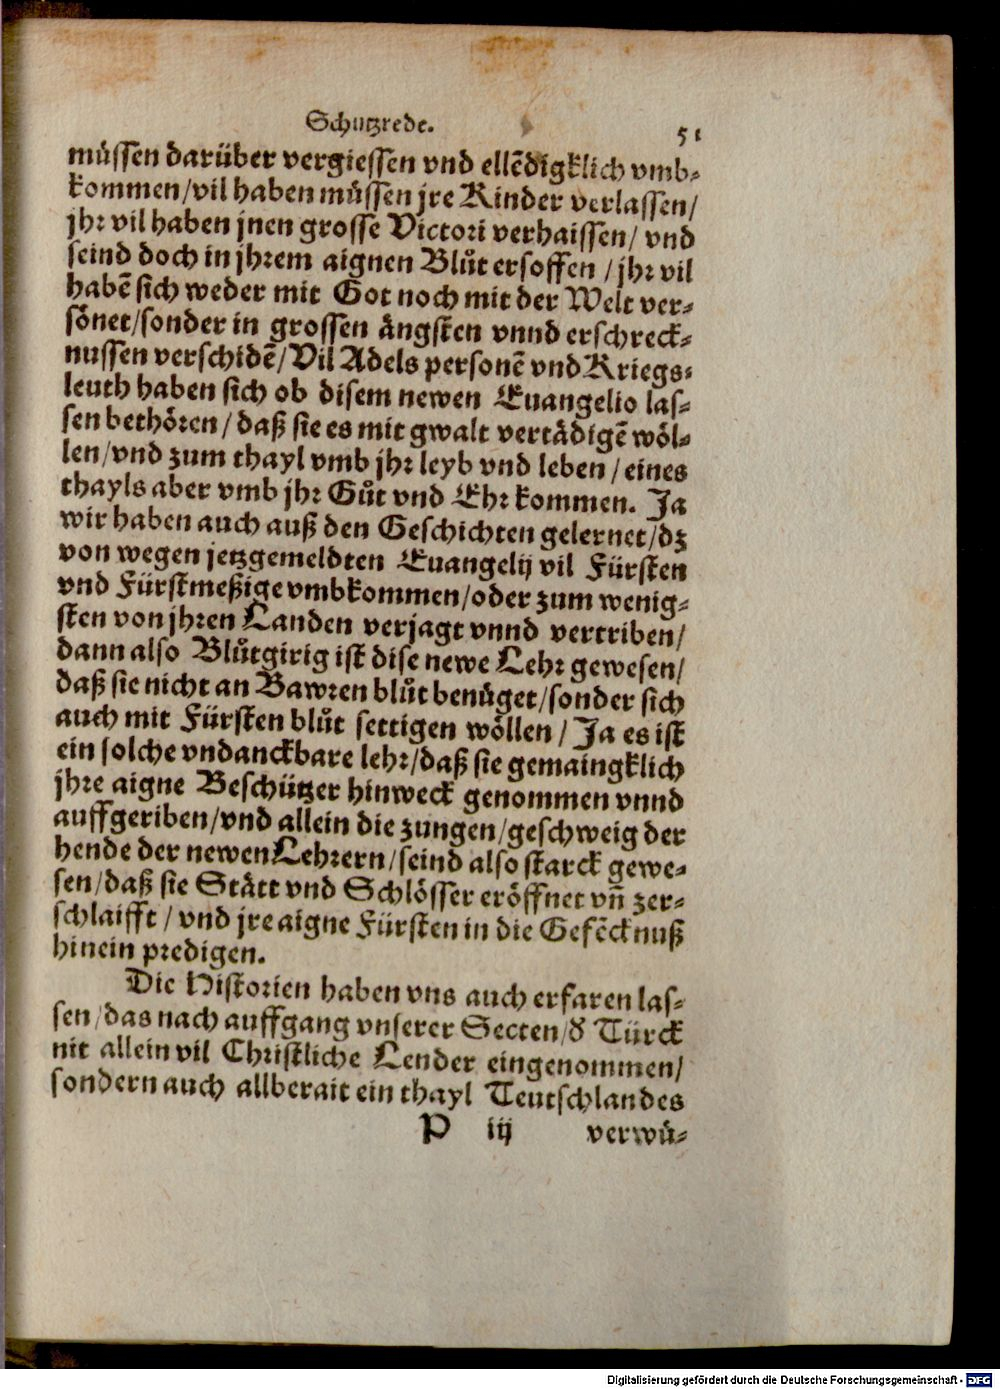 Schutzrede. 51
müssen darüber vergiessen vnd ellẽdigklich vmb-
kommen/vil haben müssen jre Kinder verlassen/
jhr vil haben jnen grosse Victori verhaissen/ vnd
seind doch in jhrem aignen Blůt ersoffen /jhr vil
habẽ sich weder mit Got noch mit der Welt ver-
sönet/sonder in grossen ängsten vnnd erschreck-
nussen verschidẽ/ Vil Adels personẽ vnd Kriegs-
leuth haben sich ob disem newen Euangelio las-
sen bethören/ daß sie es mit gwalt vertädigẽ wöl-
len/vnd zum thayl vmb jhr leyb vnd leben /eines
thayls aber vmb jhr Gůt vnd Ehr kommen. Ja
wir haben auch auß den Geschichten gelernet/dz
von wegen jetzgemeldten Euangelij vil Fürsten
vnd Fürstmeßige vmbkommen/oder zum wenig-
sten von jhren Landen verjagt vnnd vertriben/
dann also Blůtgirig ist dise newe Lehr gewesen/
daß sie nicht an Bawren blůt benüget/sonder sich
auch mit Fürsten blůt settigen wöllen/ Ja es ist
ein solche vndanckbare lehr/daß sie gemaingklich
jhre aigne Beschützer hinweck genommen vnnd
auffgeriben/vnd allein die zungen/geschweig der
hende der newen Lehrern/seind also starck gewe-
sen/daß sie Stätt vnd Schlösser eröffnet vñ zer-
schlaifft/ vnd jre aigne Fürsten in die Gefẽcknuß
hinein predigen.
Die Historien haben vns auch erfaren las-
sen/das nach auffgang vnserer Secten/ď Türck
nit allein vil Christliche Lender eingenommen/
sondern auch allberait ein thayl Teutschlandes
P iij verwü-
Digitalisierung gefördert durch die Deutsche Forschungsgemeinschaft - DFG